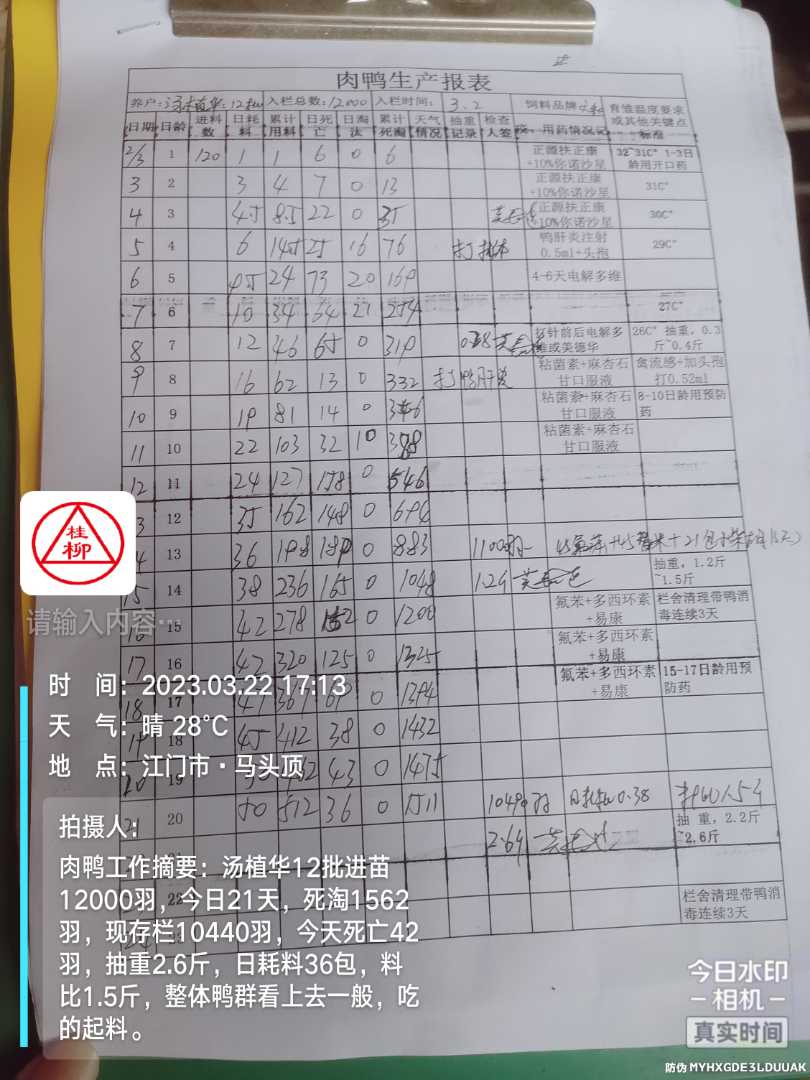 肉鸭生产报表
养户: 汤植华12批 入栏总数: 12000 入栏时间: 3.2 饲料品牌 育雏温度要求或其他关键点标准
日期 日龄 进料数 日耗料 累计用料 日死亡 日淘汰 累计死淘 天气情况 抽重记录 检查人签 用药情况记
2/3 1 120 1 1 6 0 6 正源扶正康+10%你诺沙星 32~31C° 1-3日龄用开口药
3 2 3 4 7 0 13 正源扶正康+10%你诺沙星 31C°
4 3 4.5 8.5 22 0 35 正源扶正康+10%你诺沙星 30C°
5 4 6 14.5 25 16 76 鸭肝炎注射0.5ml+头孢 29C°
6 5 9.5 24 73 20 169 4-6天电解多维
7 6 10 34 64 21 254 27C°
8 7 12 46 65 0 319 打针前后电解多维或美德华 26C° 抽重，0.3斤~0.4斤
9 8 16 62 13 0 332 打鸭肝炎 粘菌素+麻杏石甘口服液 禽流感+加头孢打0.52ml
10 9 19 81 14 0 346 粘菌素+麻杏石甘口服液 8-10日龄用预防药
11 10 22 103 32 10 388 粘菌素+麻杏石甘口服液
12 11 24 127 158 0 546
12 35 162 148 0 694
13 36 198 189 0 883 1100羽
15 14 38 236 165 0 1048 1.24 抽重，1.2斤~1.5斤
15 42 278 152 0 1200 氟苯+多西环素+易康 栏舍清理带鸭消毒连续3天
17 16 42 320 125 0 1325 氟苯+多西环素+易康
18 17 47 367 69 0 1394 氟苯+多西环素+易康 15-17日龄用预防药
18 45 412 38 0 1432
19 43 0 1475
20 50 512 36 0 1511 日耗料0.38
2.64 抽重，2.2斤~2.6斤
22 栏舍清理带鸭消毒连续3天
桂
柳
请输入内容…
时 间：2023.03.22 17:13
天 气：晴 28℃
地 点：江门市·马头顶
拍摄人：
肉鸭工作摘要：汤植华12批进苗
12000羽，今日21天，死淘1562
羽，现存栏10440羽，今天死亡42
羽，抽重2.6斤，日耗料36包，料
比1.5斤，整体鸭群看上去一般，吃
的起料。
今日水印
－相机－
真实时间
防伪 MYHXGDE3LDUUAK